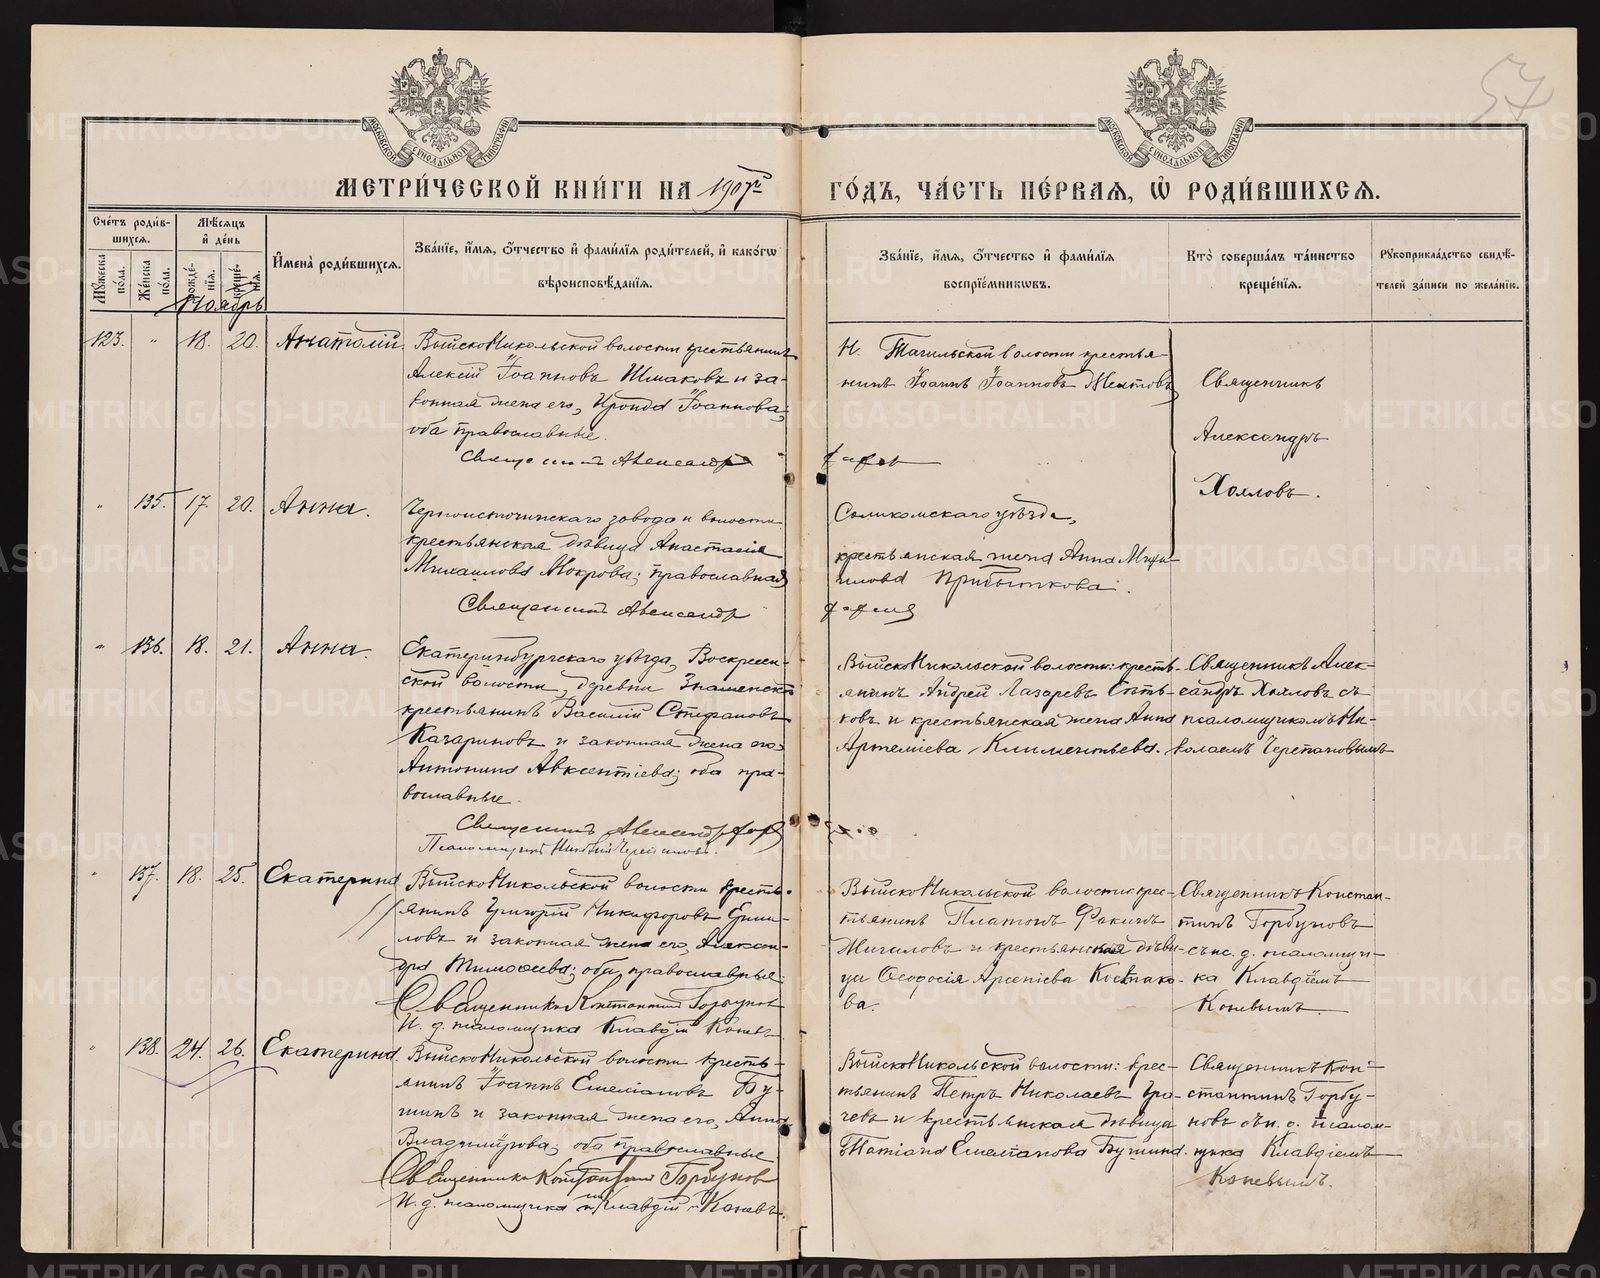 57
МОСКОВСКОЙ СѴНОДАЛЬНОЙ ТИПОГРАФІИ
МОСКОВСКОЙ СѴНОДАЛЬНОЙ ТИПОГРАФІИ
МЕТРИ́ЧЕСКОЙ КНИ́ГИ НА 1907й ГО́ДЪ, ЧА́СТЬ ПЕ́РВАЯ, Ѡ҆ РОДИ́ВШИХСЯ.
Сче́тъ роди́в-
шихся.
Му́жеска по́ла.
Же́нска по́ла.
Мѣ́сяцъ
и҆ де́нь
рожде́-
нїя.
креще́-
нїя.
И҆мена̀ роди́вшихся.
Зва́нїе, и҆́мя, ѻ҆́тчество и҆ фами́лїя роди́телей, и҆ како́гѡ
вѣроисповѣ́данїя.
Зва́нїе, и҆́мя, ѻ҆́тчество и҆ фами́лїя
воспрїе́мникѡвъ.
Кто̀ соверша́лъ та́инство
креще́нїя.
Рꙋкоприкла́дство свидѣ́-
телей за́писи по жела́нїю.
Ноябрь
123. " 18. 20. Анатолій.
ВыйскоНикольской волости крестьянинъ
Алексій Іоанновъ Шмаковъ и за-
конная жена его, Ироида Іоаннова;
оба православные.
Священникъ Александръ
Н. Тагильской волости крестья-
нинъ Іоаннъ Іоанновъ Желтовъ
Священникъ
Александръ
Хохловъ.
" 135. 17. 20. Анна.
Черноисточинскаго завода и волости
крестьянская дѣвица Анастасія
Михаилова Мокрова; православная
Священникъ Александръ
Соликамскаго уѣзда,
крестьянская жена Анна
Прибыткова.
" 136. 18. 21. Анна.
Екатеринбургскаго уѣзда, Воскресен-
ской волости, деревни
крестьянинъ Василій Стефановъ
Казариновъ и законная жена его
Антонина Авксентіева; оба пра-
вославные.
Священникъ Александръ
Псаломщикъ Николай Черепановъ.
ВыйскоНикольской волости: кресть-
янинъ Андрей Лазаревъ
ковъ и крестьянская жена Анна
Артеміева Климентьева.
Священникъ Алек-
сандръ Хохловъ съ
псаломщикомъ Ни-
колаемъ Черепановымъ
" 137. 18. 25. Екатерина
ВыйскоНикольской волости кресть-
янинъ Григорій Никифоровъ Ерми-
ловъ и законная жена его, Алексан-
дра Тимоѳеева; оба православные.
Священникъ Константинъ Горбуновъ
И. д. псаломщика Клавдій Коневъ
ВыйскоНикольской волости: крес-
тьянинъ Платонъ
Жигаловъ и крестьянская дѣви-
ца Ѳеодосія Арсеніева Костако-
ва.
Священникъ Констан-
тинъ Горбуновъ
съ и. д. псаломщи-
ка Клавдіемъ
Коневымъ.
" 138. 24. 26. Екатерина.
ВыйскоНикольской волости кресть-
янинъ Іоаннъ Емеліановъ Бу-
шинъ и законная жена его, Анна
Владимірова; оба православные.
Священникъ Константинъ Горбуновъ
И. д. псаломщика Клавдій Коневъ.
ВыйскоНикольской волости: крес-
тьянинъ Петръ Николаевъ Гра-
чевъ и крестьянская дѣвица
Татіана Емеліанова Бушина.
Священникъ Кон-
стантинъ Горбу-
новъ съ и. д. псалом-
щика Клавдіемъ
Коневымъ.
METRIKI.GASO-URAL.RU